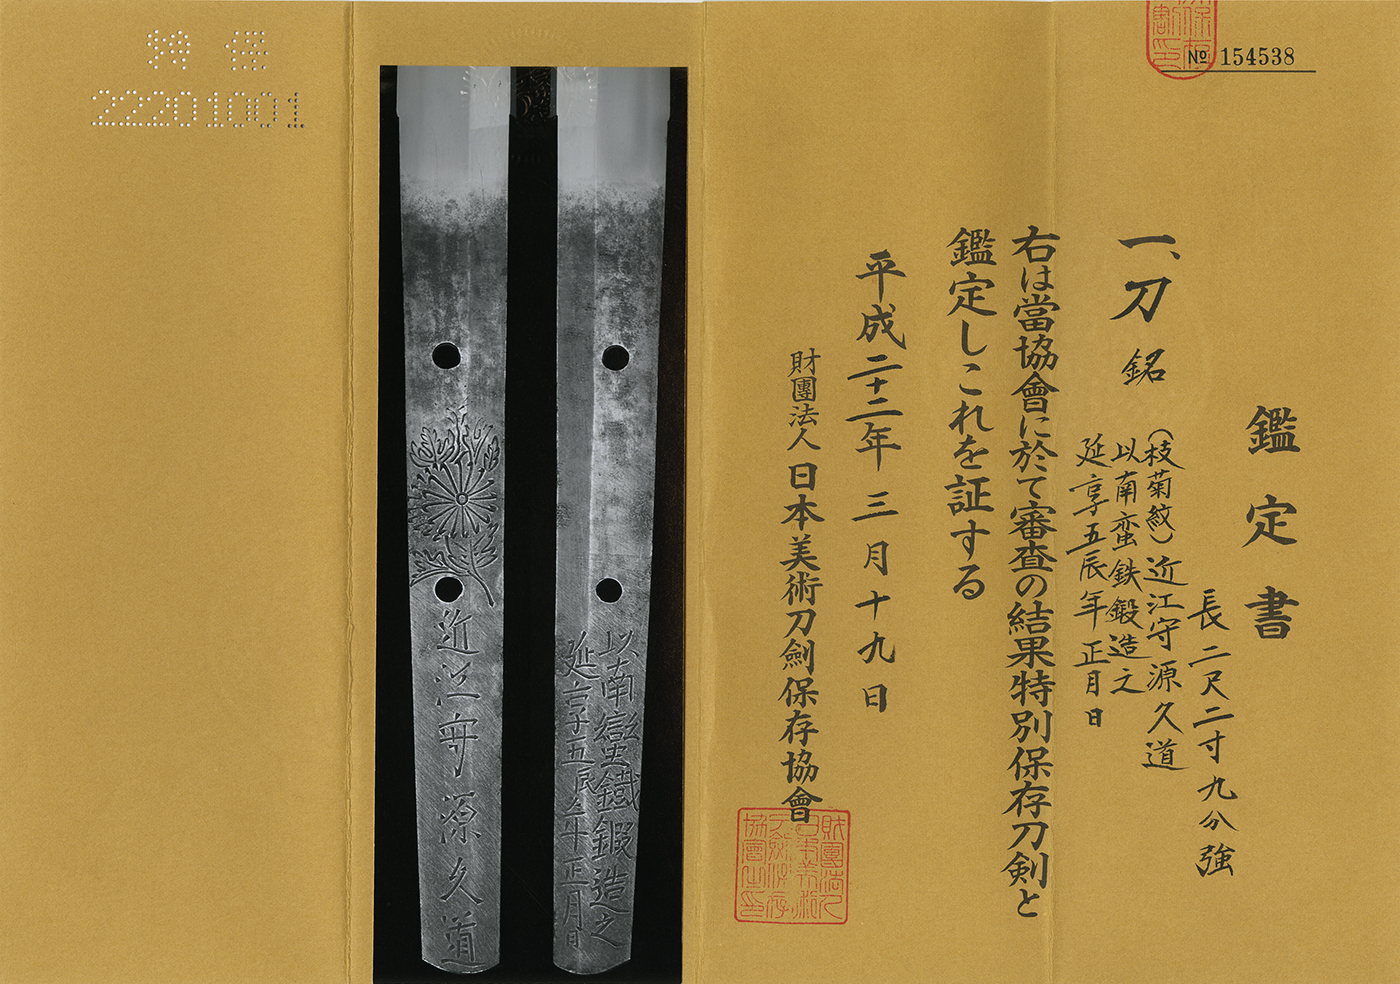 No 154538
鑑定書
長二尺二寸九分強
一、刀 銘 (枝菊紋)近江守源久道
以南蛮鉄鍛造之
延享五辰年正月日
右は當協會に於て審査の結果特別保存刀剣と
鑑定しこれを証する
平成二十二年三月十九日
財團法人日本美術刀劍保存協會
以南蠻鐵鍛造之
延享五辰年正月日
近江守源久道
特保
22201001